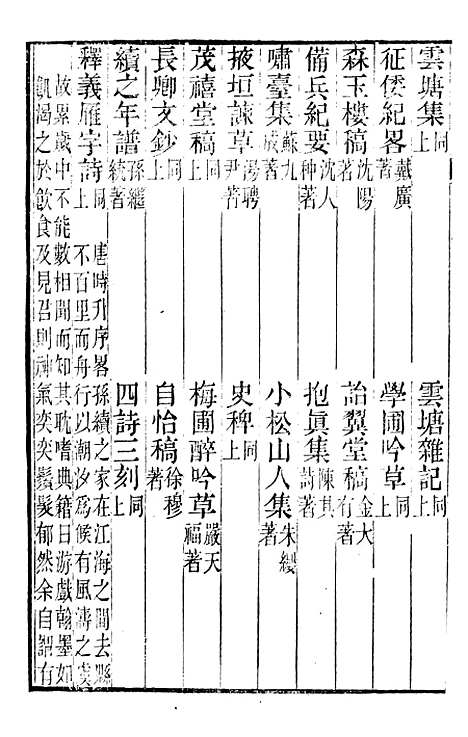 雲塘集同上　雲塘雜記同上
征倭紀畧戴廣著　學圃吟草同上
森玉樓稿沈陽著　詒翼堂稿金大有著
備兵紀要沈人种著　抱眞集陳其詩著
嘯臺集蘇九成著　小松山人集朱纓著
掖垣諫草湯聘尹著　史稗同上
茂禧堂稿同上　梅圃醉吟草嚴天福著
長卿文鈔同上　自怡稿徐穆著
續之年譜孫繼統著　四詩三刻同上
釋義雁字詩同上　唐時升序畧孫續之家在江海之間去縣不百里而舟行以潮汐爲候有風濤之虞
故累歲中不能數相聞而知其耽嗜典籍日游戲翰墨如
飢渴之於飮食及見召則神氣奕奕鬚髮郁然余自詔有